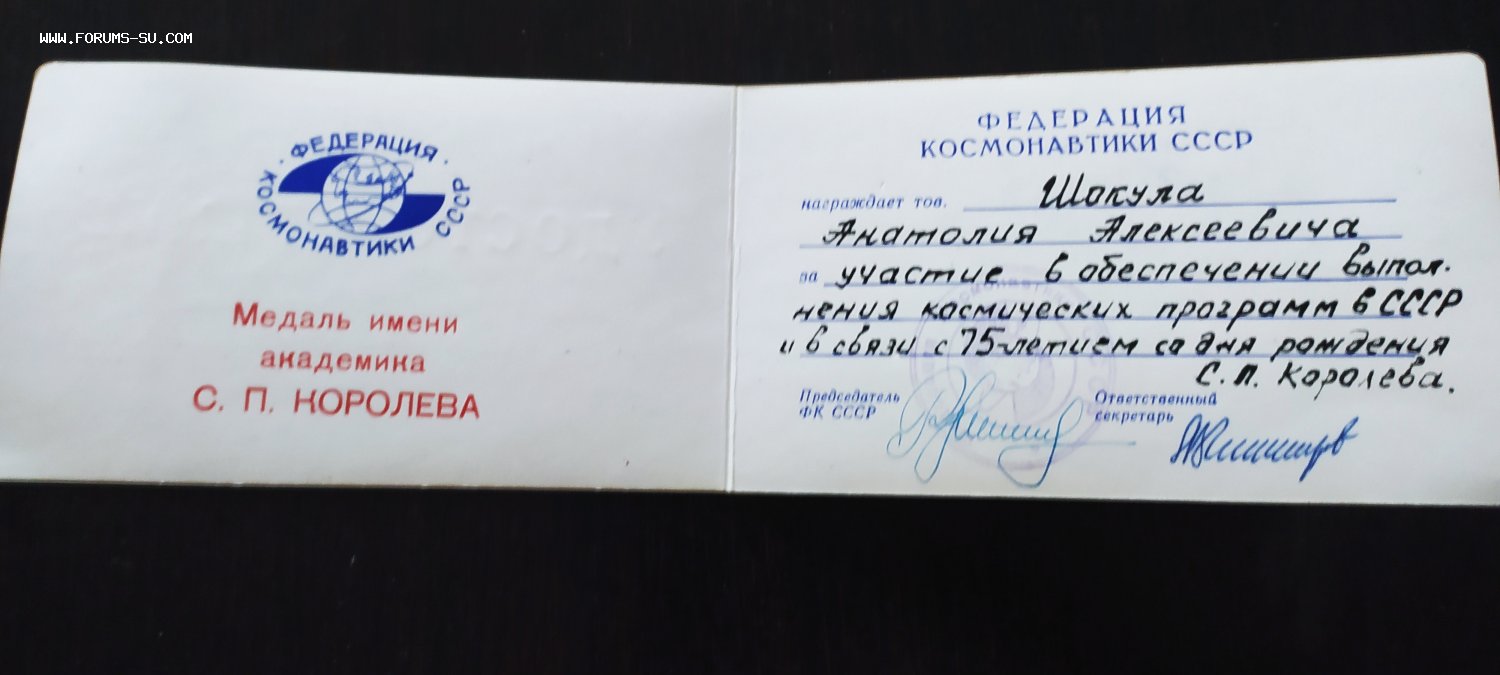 WWW.FORUMS-SU.COM
· ФЕДЕРАЦИЯ ·
КОСМОНАВТИКИ СССР
Медаль имени
академика
С. П. КОРОЛЕВА
ФЕДЕРАЦИЯ
КОСМОНАВТИКИ СССР
награждает тов. Шокула
Анатолия Алексеевича
за участие в обеспечении выпол-
нения космических программ в СССР
и в связи с 75-летием со дня рождения
С.П. Королева.
Председатель
ФК СССР
Ответственный
секретарь